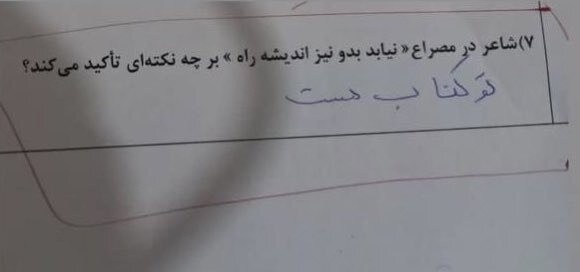 ۷)شاعر در مصراع« نیابد بدو نیز اندیشه راه » بر چه نکته‌ای تأکید می‌کند؟
تو کتاب هست